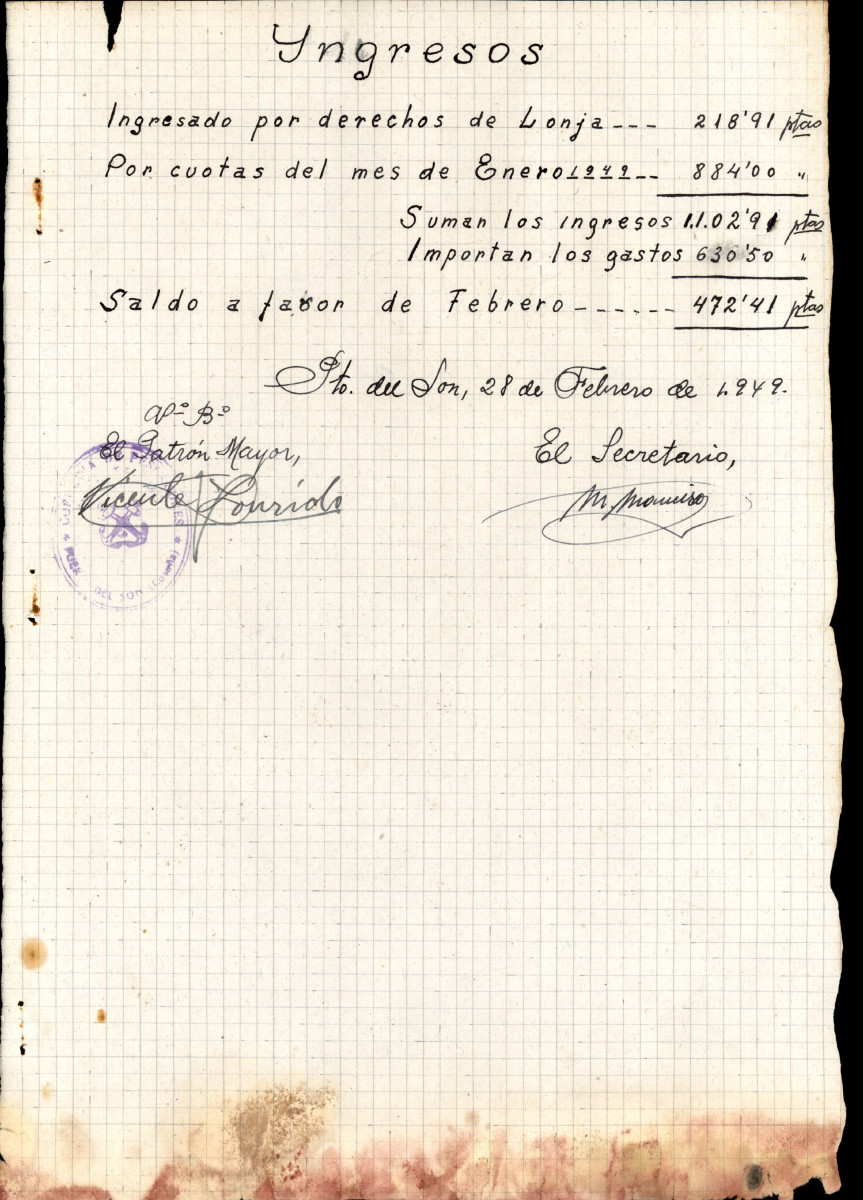 Yngresos
Ingresado por derechos de Lonja --- 218'91 ptas
Por cuotas del mes de Enero 1949 -- 884'00 "
Suman los ingresos 1.1.02'91 ptas
Importan los gastos 630'50 "
Saldo a favor de Febrero ------ 472'41 ptas
Pto. del Son, 28 de Febrero de 1.949.
Vº Bº
El Patrón Mayor,
El Secretario,
Vicente Lourido
DEL SON (Coruña)